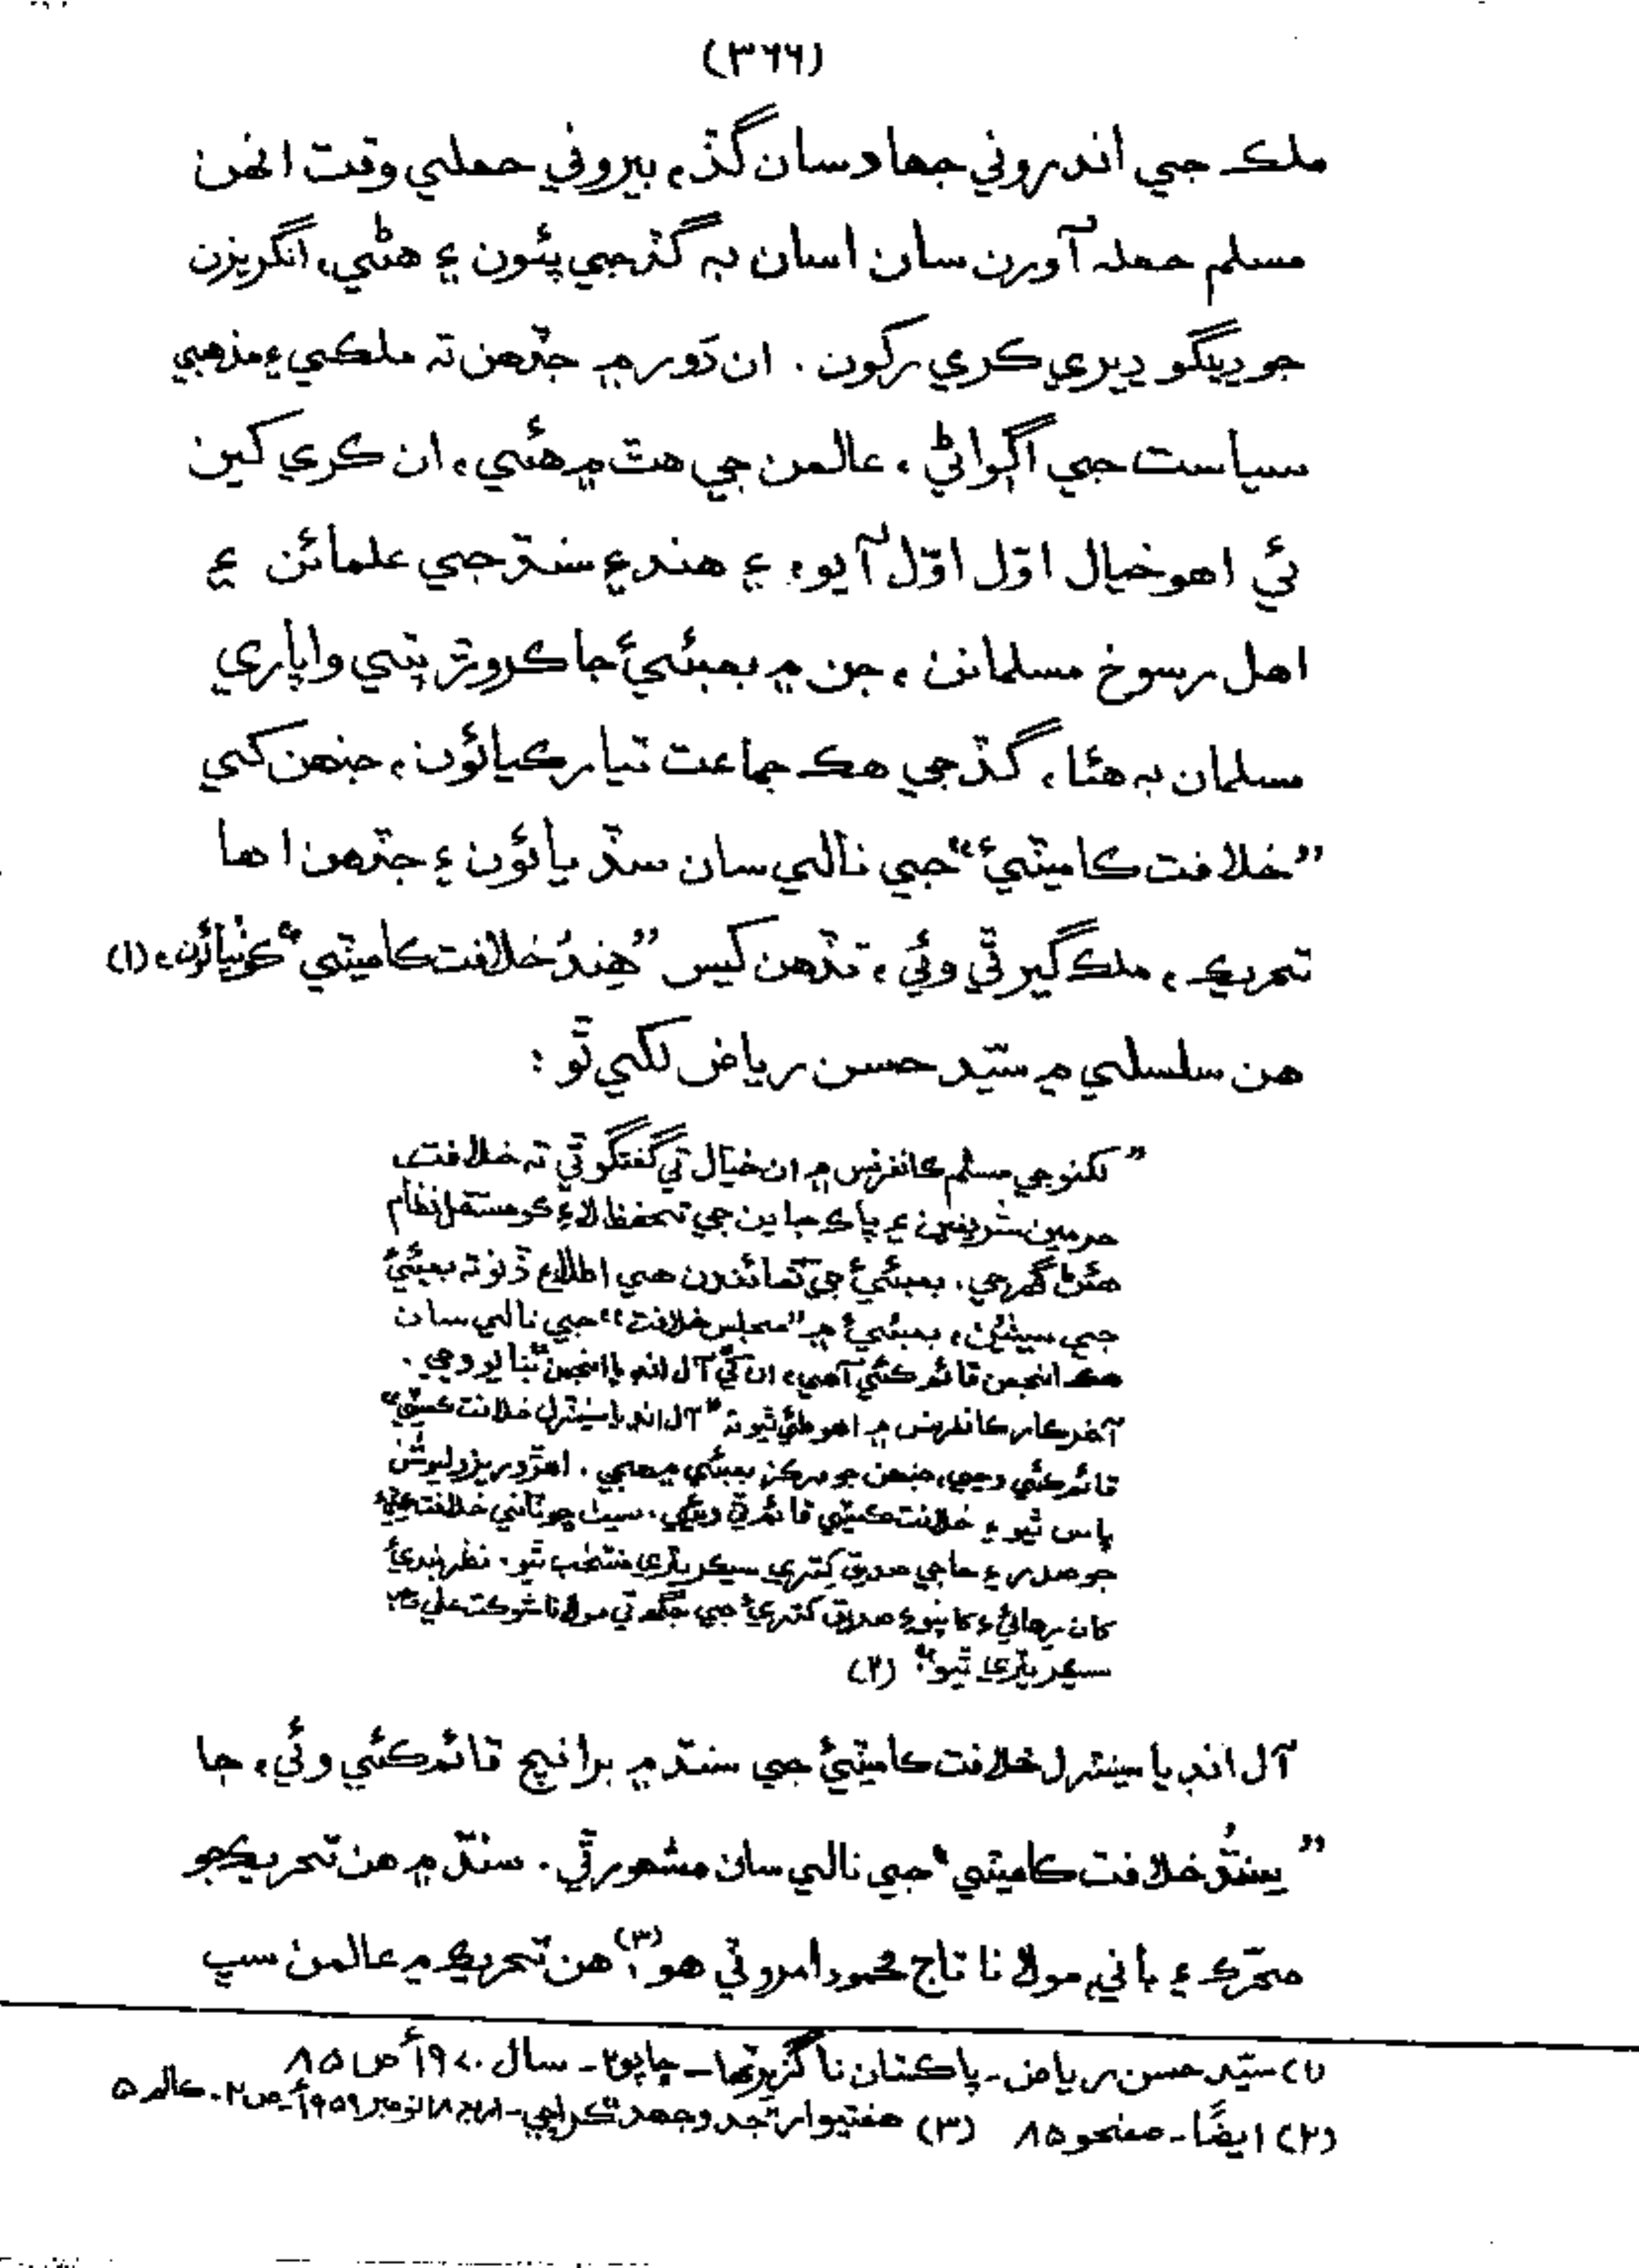 (٣٦٦)
ملڪ جي اندروني جهاد سان گڏ، بيروني حملي وقت انهن
مسلم حملہ آورن سان اسان بہ گڏجي پئون ۽ هڻي، انگريزن
جو ڍينگو ڍيري ڪري رکون. ان دَور ۾ جڏهن تہ ملڪي ۽ مذهبي
سياست جي اڳواڻي، عالمن جي هٿ ۾ هئي، ان ڪري کين
ئي اهو خيال اوّل اوّل آيو، ۽ هند ۽ سنڌ جي علمائن ۽
اهل رسوخ مسلمانن، جن ۾ بمبئيءَ جا ڪروڙ پتي واپاري
مسلمان بہ هئا، گڏجي هڪ جماعت تيار ڪيائون، جنهن کي
”خلافت ڪاميٽيءَ“ جي نالي سان سڏيائون ۽ جڏهن اها
تحريڪ، ملڪ گير ٿي وئي، تڏهن کيس ”هِندُ خلافت ڪاميٽي“ ڪوٺيائون، (١)
هن سلسلي ۾ سيّد حسن رياض لکي ٿو:
”لکنو جي مسلم ڪانفرنس ۾ ان خيال تي گفتگو ٿي تہ خلافت،
حرمين شريفين ۽ پاڪ جاين جي تحفظ لاءِ ڪو مستقل نظام
هئڻ گهرجي. بمبئيءَ جي نمائندن هي اطلاع ڏنو تہ بمبئيءَ
جي سيٺين، بمبئيءَ ۾ ”مجلس خلافت“ جي نالي سان
هڪ انجمن قائم ڪئي آهي، ان کي آل انڊيا انجمن بنايو وڃي.
آخرڪار ڪانفرنس ۾ اهو طئي ٿيو تہ ”آل انڊيا سينٽرل خلافت ڪميٽي“
قائم ڪئي وڃي، جنهن جو مرڪز بمبئي ۾ هجي. اهڙو ريزوليوشن
پاس ٿيو ۽ خلافت ڪميٽي قائم ٿي ويئي. سيٺ ڇوٽاڻي خلافت ڪميٽيءَ
جو صدر ۽ حاجي صديق کتري سيڪريٽري منتخب ٿيو. نظربنديءَ
کان رهائيءَ کانپوءِ صديق کتريءَ جي جڳهه تي مولانا شوڪت علي
سيڪريٽري ٿيو“ (٢)
آل انڊيا سينٽرل خلافت ڪاميٽيءَ جي سنڌ ۾ برانچ قائم ڪئي وئي، جا
”سِنڌُ خلافت ڪاميٽي“ جي نالي سان مشهور ٿي. سنڌ ۾ هن تحريڪ جو
محرّڪ ۽ باني، مولانا تاج محمود امروٽي هو. (٣) هن تحريڪ ۾ عالمن سڀ
(١) سيّد حسن رياض - پاڪستان ناگزير تها - ڇاپو ٢ - سال ١٩٧٠ع ص ٨٥
(٢) ايضًا - صفحو ٨٥ (٣) هفتيوار ”جدوجهد“ ڪراچي - اربع ١٨ نومبر ١٩٥٩ع - ص ٢. ڪالم ٥